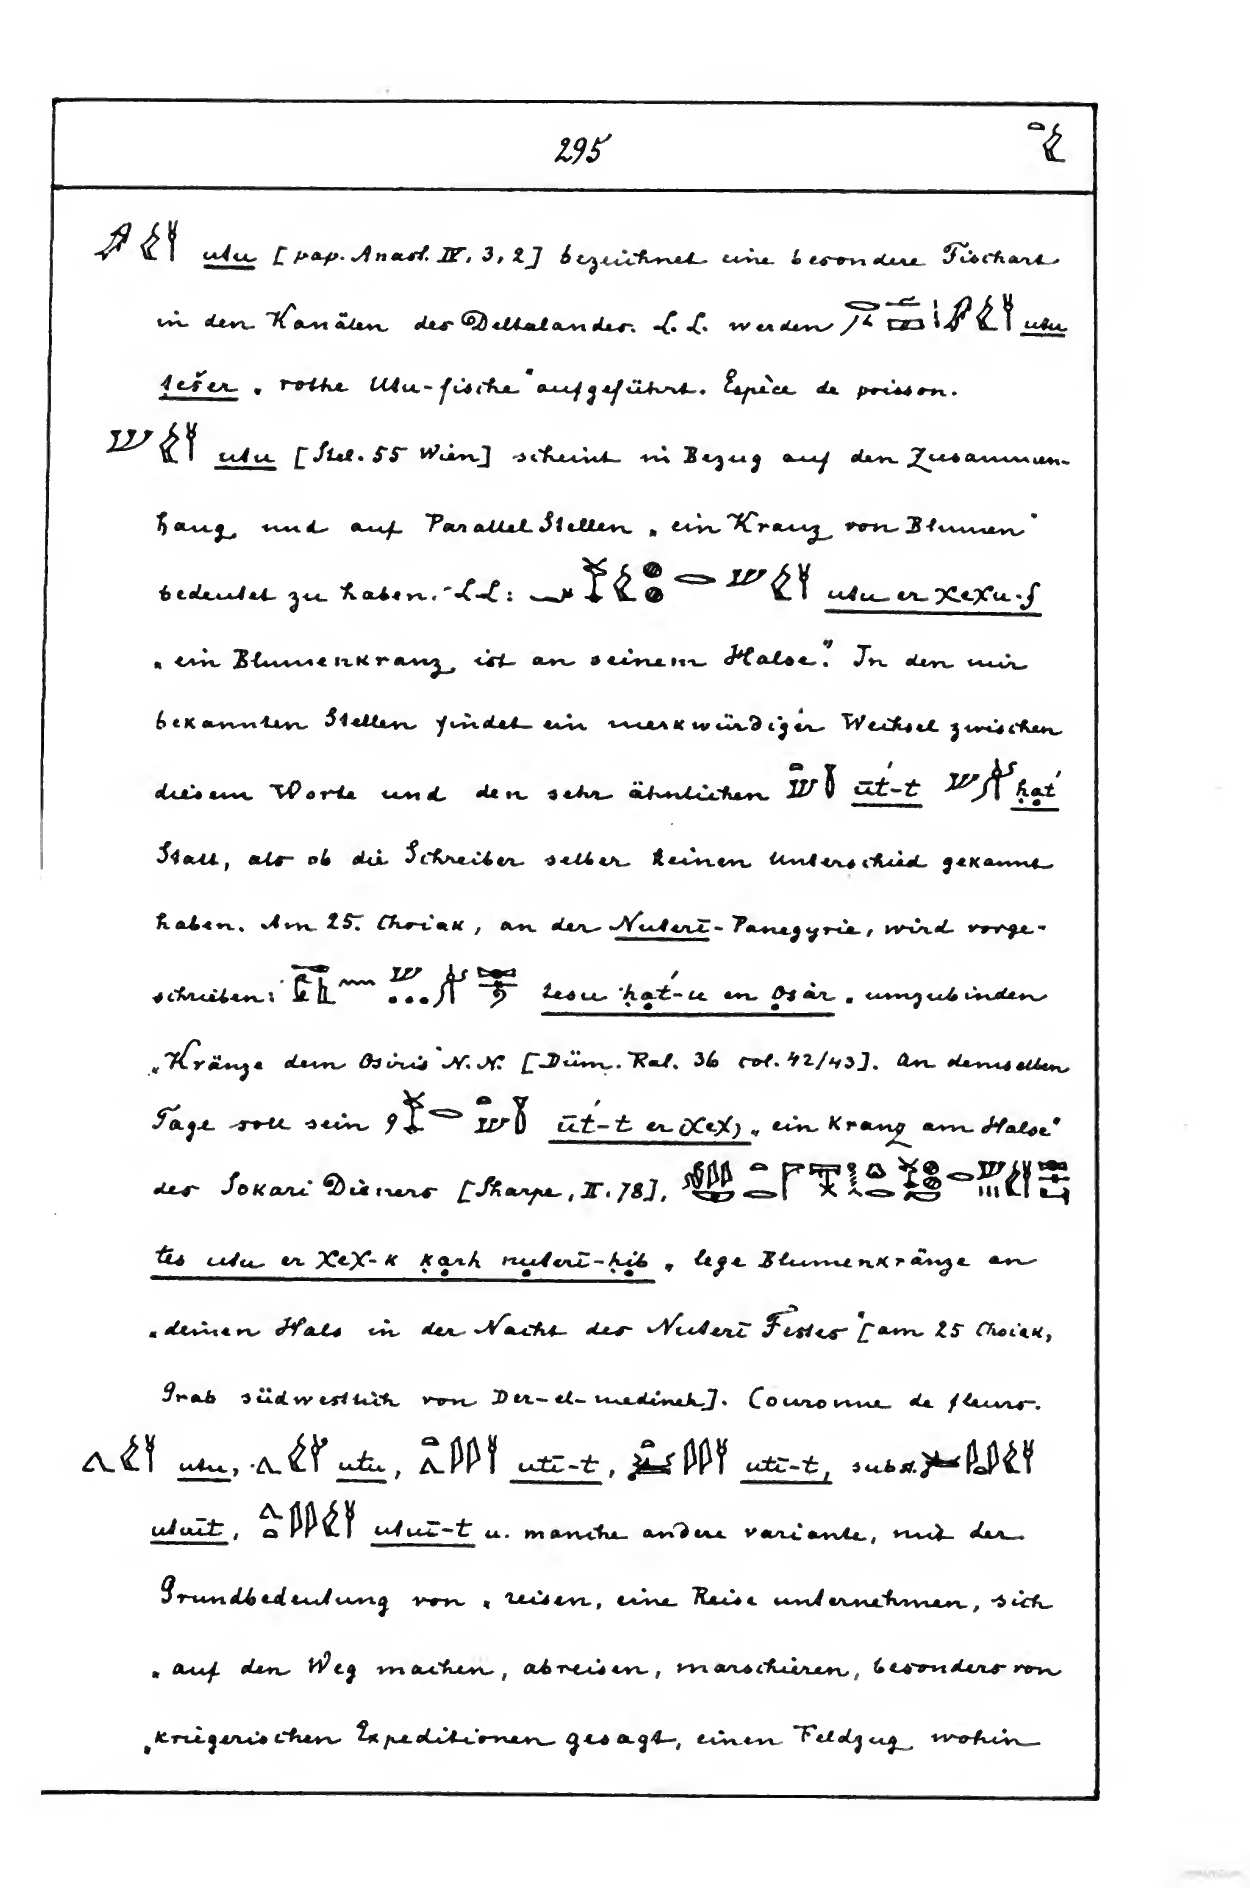 295
utu [pap. Anast. IV, 3, 2] bezeichnet eine besondere Fischart
in den Kanälen des Deltalandes. L. L. werden utu
ṭešer „ rothe Utu-fische" aufgeführt. Espèce de poisson.
utu [Stel. 55 Wien] scheint in Bezug auf den Zusammen-
hang und auf Parallel Stellen „ ein Kranz von Blumen"
bedeutet zu haben. - L L : utu er χeχu-f
„ ein Blumenkranz ist an seinem Halse". In den mir
bekannten Stellen findet ein merkwürdiger Wechsel zwischen
diesem Worte und den sehr ähnlichen ūt́-t ḥat́
Statt, als ob die Schreiber selber keinen Unterschied gekannt
haben. Am 25. Choiak, an der Nuterī - Panegyrie, wird vorge-
schrieben: tesu ḥat́-u en Osȧr „ umzubinden
„Kränze dem Osiris" N. N. [Düm. Kal. 36 col. 42/43]. An demselben
Tage soll sein ūt́-t er χeχ, „ ein Kranz am Halse"
des Sokari Dieners [Sharpe, II. 78],
tes utu er χeχ-k ḳarh nuterī-ḥib „ lege Blumenkränze an
„deinen Hals in der Nacht des Nuterī Festes" [am 25 Choiak,
Grab südwestlich von Der-el-medineh]. Couronne de fleurs.
utu, utu, utī-t, utī-t, subst.
utuīt, utuī-t u. manche andere variante, mit der
Grundbedeutung von „ reisen, eine Reise unternehmen, sich
„ auf den Weg machen, abreisen, marschieren, besonders von
„kriegerischen Expeditionen gesagt, einen Feldzug wohin